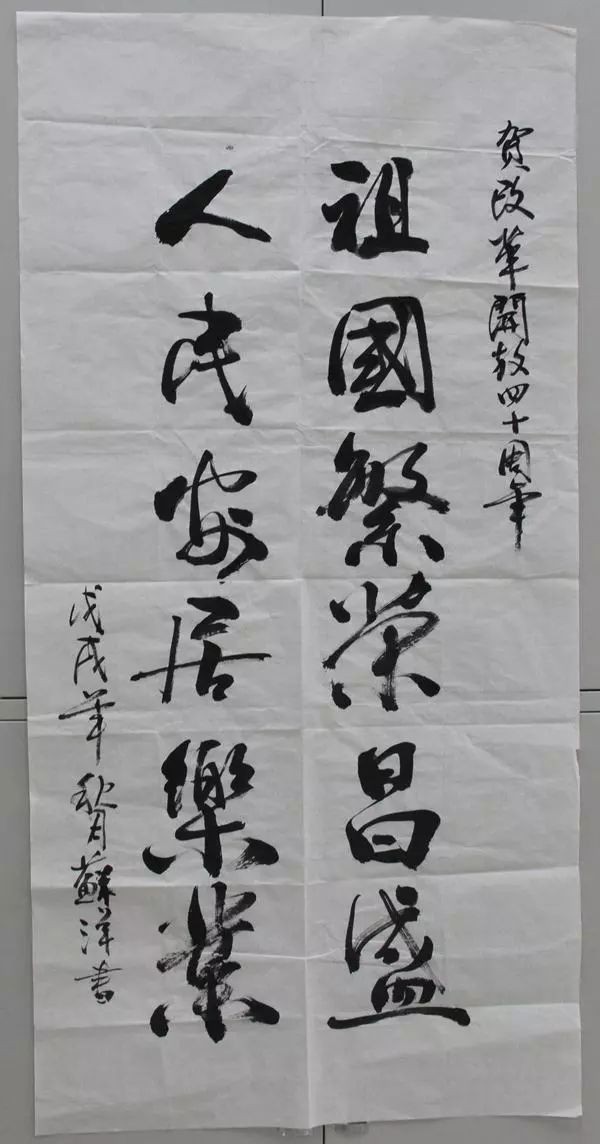 贺改革開放四十周年
祖國繁荣昌盛
人民安居樂業
戊戌年秋月蘇洋書